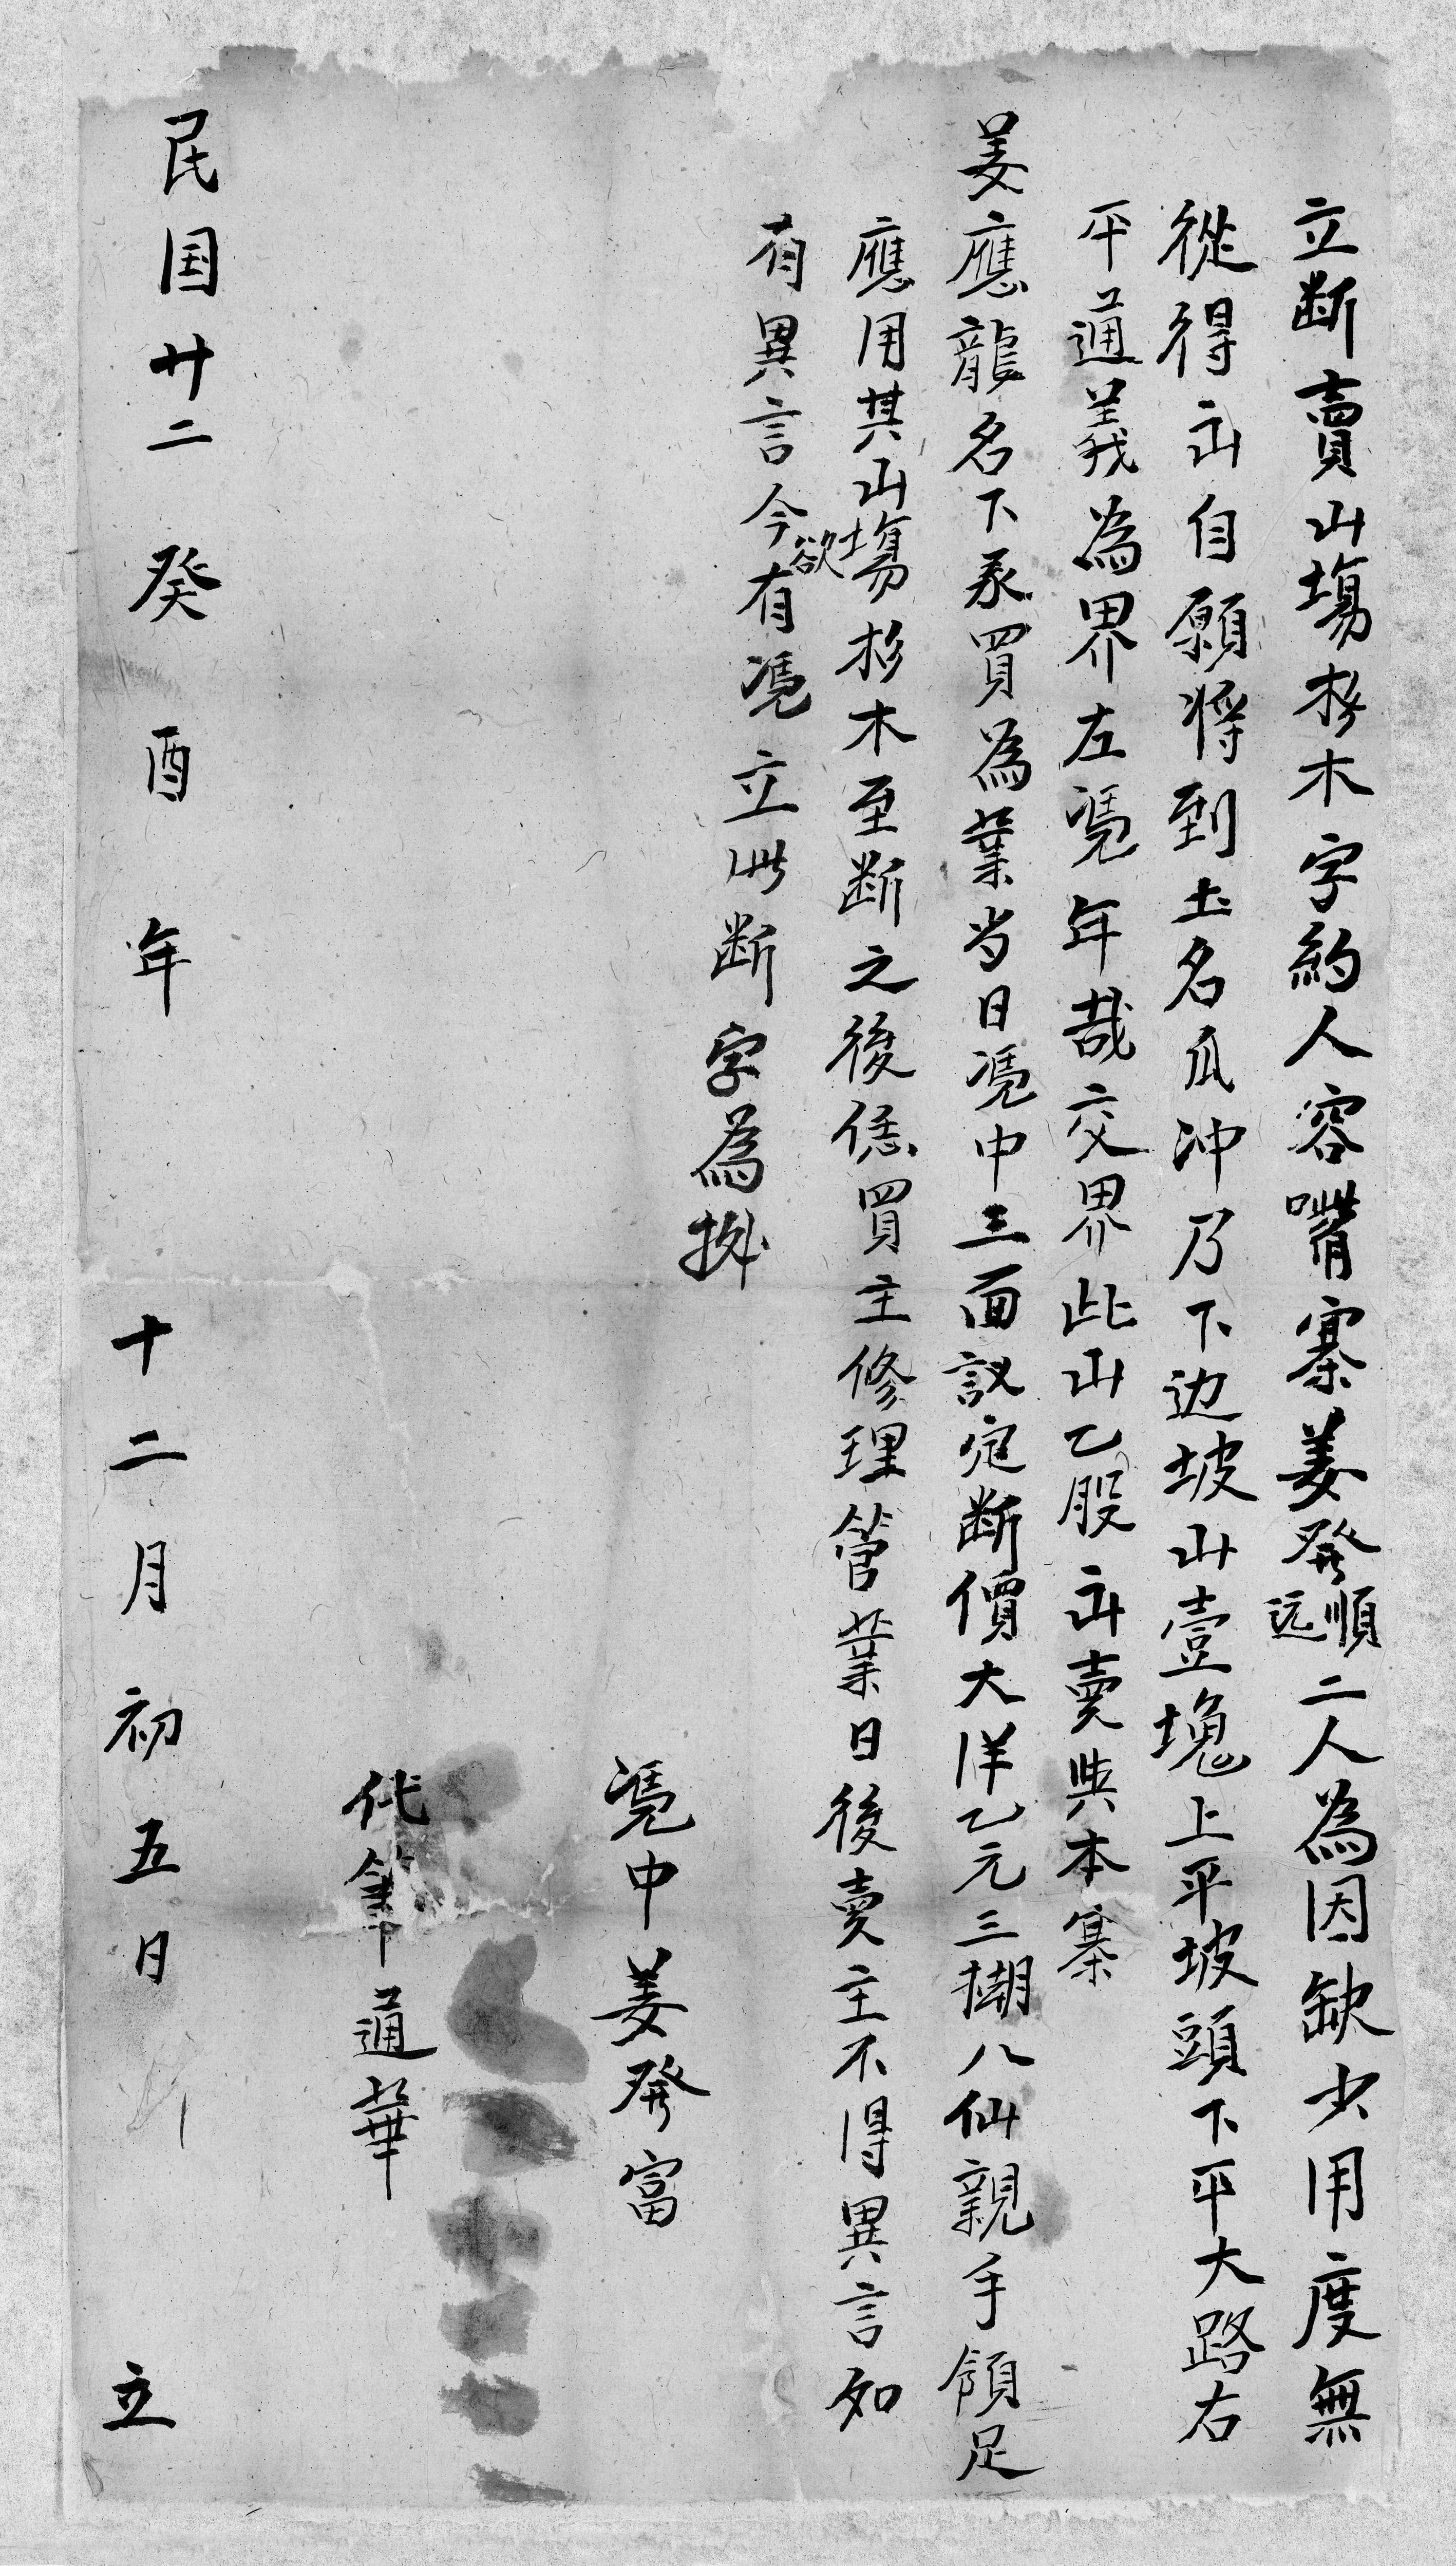 立断賣山塲杉木字約人容嘴寨姜發順远二人為因缺少用度無
從得出自願将到土名瓜冲乃下边坡山壹塊上平坡頭下平大路右
平通義為界左凴年哉交界此山乙股出賣與本寨
姜應龍名下承買為業当日凴中三面議定断價大洋乙元三捌八仙親手領足
應用其山塲杉木至断之後恁買主修理管業日後賣主不得異言如
有異言今欲有凴立此断字為拠
凴中姜發富
代筆通華
民国廿二癸酉年十二月初五日立